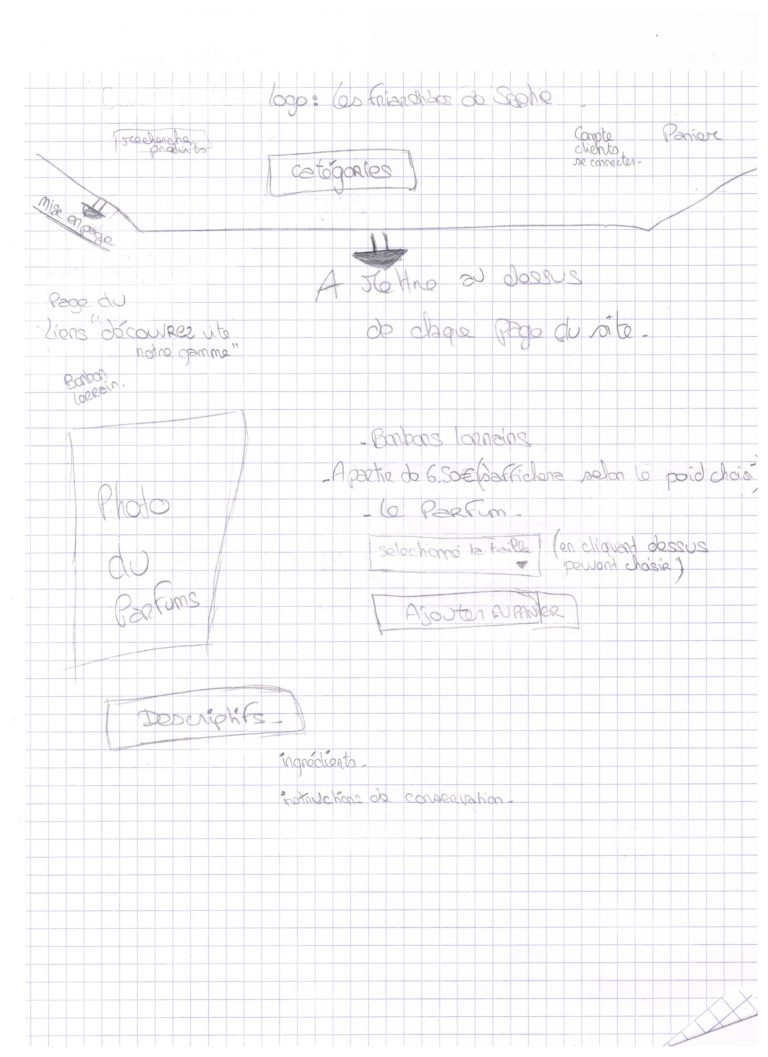 logo: Les friandises de Sophie
recherche
produits
Compte
clients
se connecter.
Panier
catégories
Mise en page
A Mettre au dessus
de chaque page du site.
Page du
Liens "découvrez vite
notre gamme"
Bonbon
lorrain.
- Bonbons lorrains
- A partir de 6.50€ (s'affichera selon le poid choisi)
- Le Parfum.
Photo
du
Parfums
selectionné la taille
(en cliquant dessus
peuvent choisir)
Ajouter AU PANIER
Descriptifs.
ingrédients.
instructions de conservation.